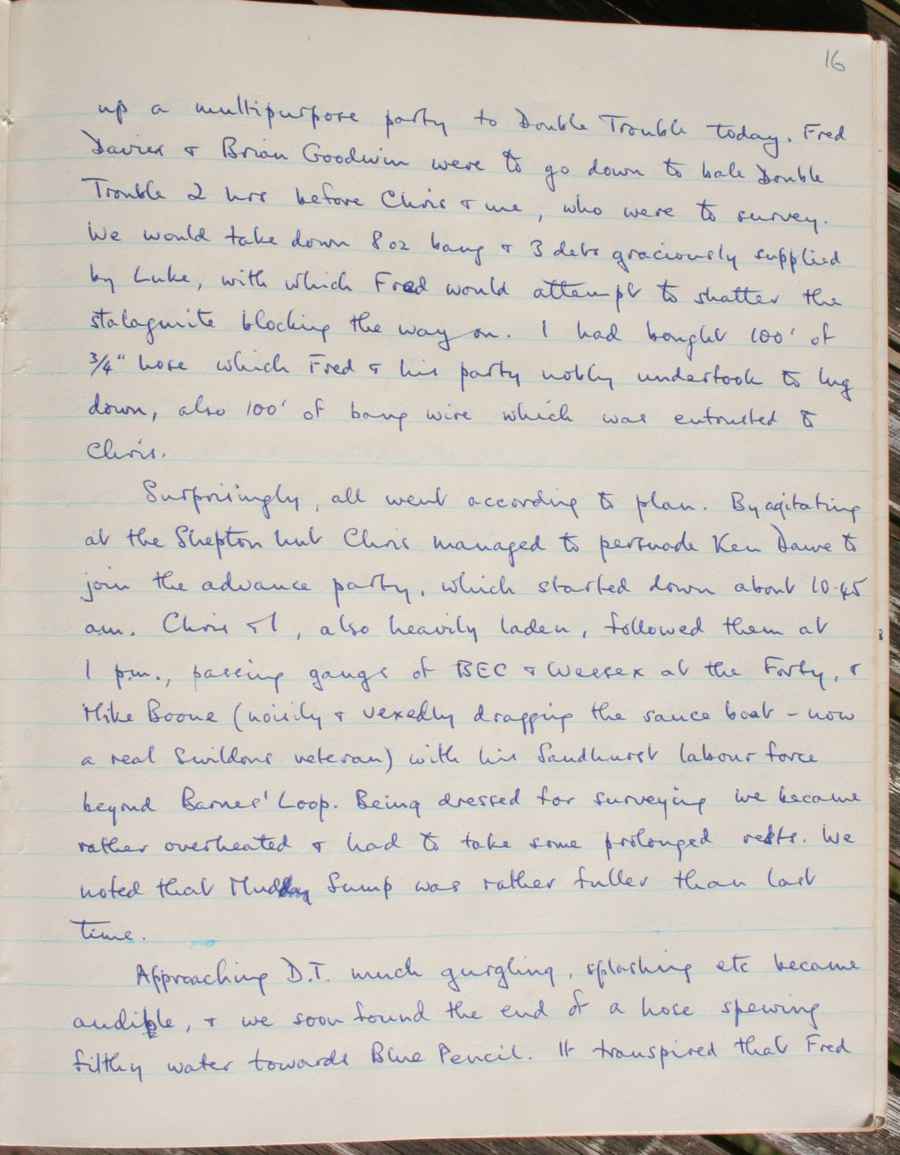 16
up a multipurpose party to Double Trouble today. Fred
Davies & Brian Goodwin were to go down to bale Double
Trouble 2 hrs before Chris & me, who were to survey.
We would take down 8 oz bang & 3 dets graciously supplied
by Luke, with which Fred would attempt to shatter the
stalagmite blocking the way on. I had bought 100' of
3/4" hose which Fred & his party nobly undertook to lug
down, also 100' of bang wire which was entrusted to
Chris.
Surprisingly, all went according to plan. By agitating
at the Shepton hut Chris managed to persuade Ken Dawe to
join the advance party, which started down about 10.45
am. Chris & I, also heavily laden, followed them at
1 p.m., passing gangs of BEC & Wessex at the Forty, &
Mike Boone (noisily & vexedly dragging the sauce boat - now
a real Swildons veteran) with his Sandhurst labour force
beyond Barnes' Loop. Being dressed for surveying we became
rather overheated & had to take some prolonged rests. We
noted that Mud Sump was rather fuller than last
time.
Approaching D.T. much gurgling, splashing etc became
audible, & we soon found the end of a hose spewing
filthy water towards Blue Pencil. It transpired that Fred